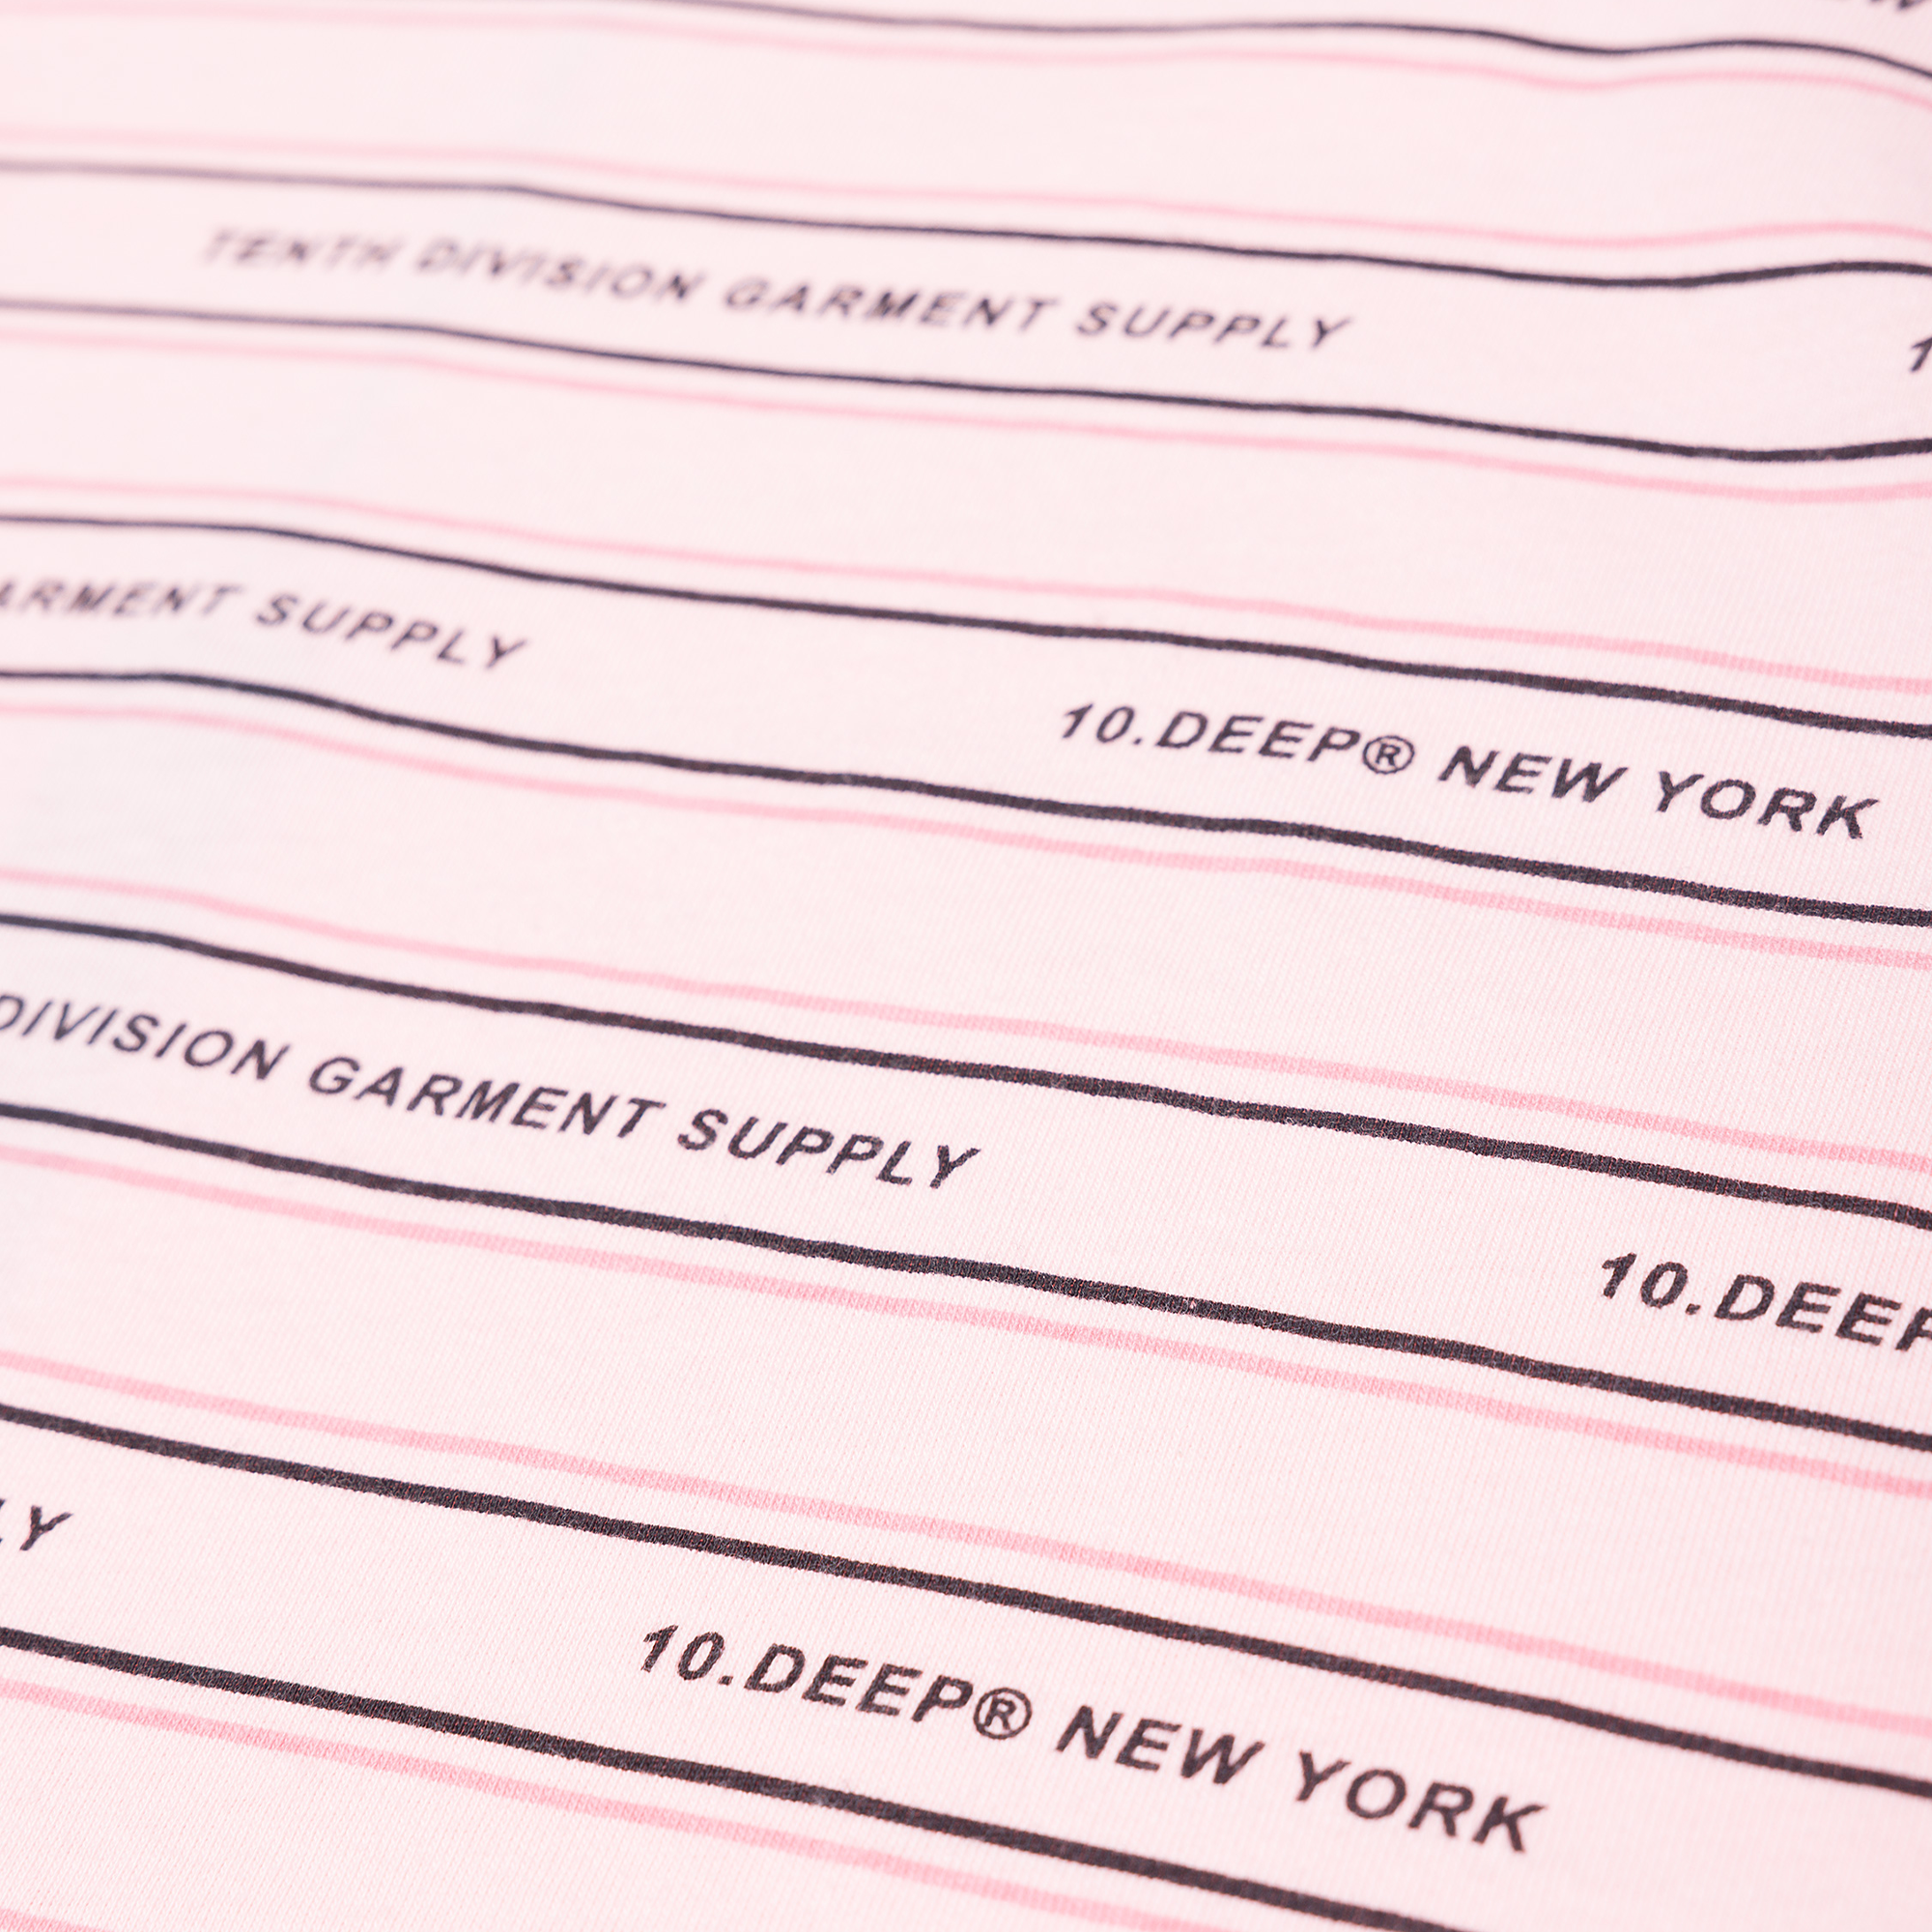 TENTH DIVISION GARMENT SUPPLY
GARMENT SUPPLY 10.DEEP® NEW YORK
DIVISION GARMENT SUPPLY 10.DEEP
LY 10.DEEP® NEW YORK